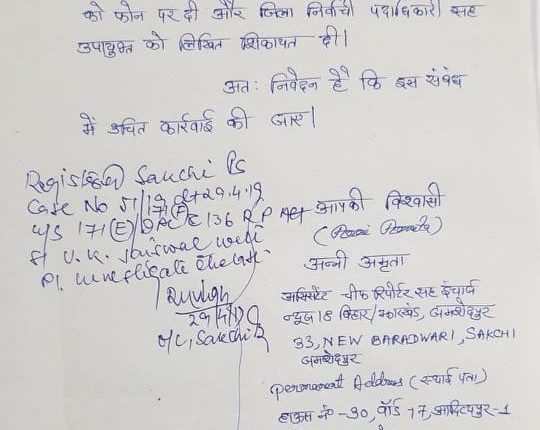 को फोन पर दी और जिला निर्वाची पदाधिकारी सह
उपायुक्त को लिखित शिकायत दी।
अत: निवेदन है कि इस संबंध
में उचित कार्रवाई की जाए।
Registered Sakchi PS
Case No 51/19 dt 29.4.19
U/S 171(E)/ 136 R P Act
SI U.K. Jaiswal will
Pl. investigate the case.
29/4/19
O/C, Sakchi PS
आपकी विश्वासी
अन्नी अमृता
असिस्टेंट चीफ रिपोर्टर सह इंचार्ज
न्यूज 18 बिहार/झारखंड, जमशेदपुर
33, NEW BARADWARI, SAKCHI
जमशेदपुर
Permanent Address (स्थाई पता)
हाउस नं -30, वॉर्ड 17, आदित्यपुर-1